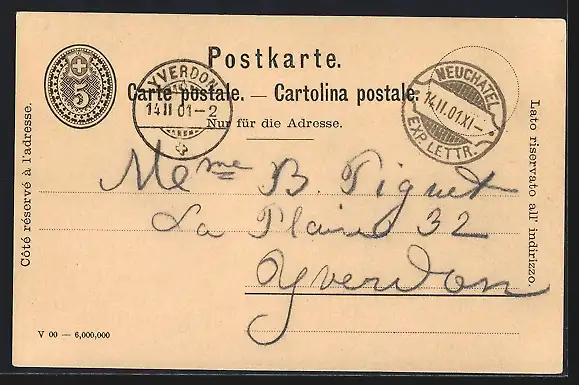 Postkarte.
Carte postale. — Cartolina postale.
Nur für die Adresse.
5
YVERDON
14 II 01 - 2
NEUCHATEL
14.II.01.XI -
EXP. LETTR.
Côté réservé à l'adresse.
Lato riservato all' indirizzo.
Mme B. Piguet
La Plaine 32
Yverdon
V 00 — 6,000,000